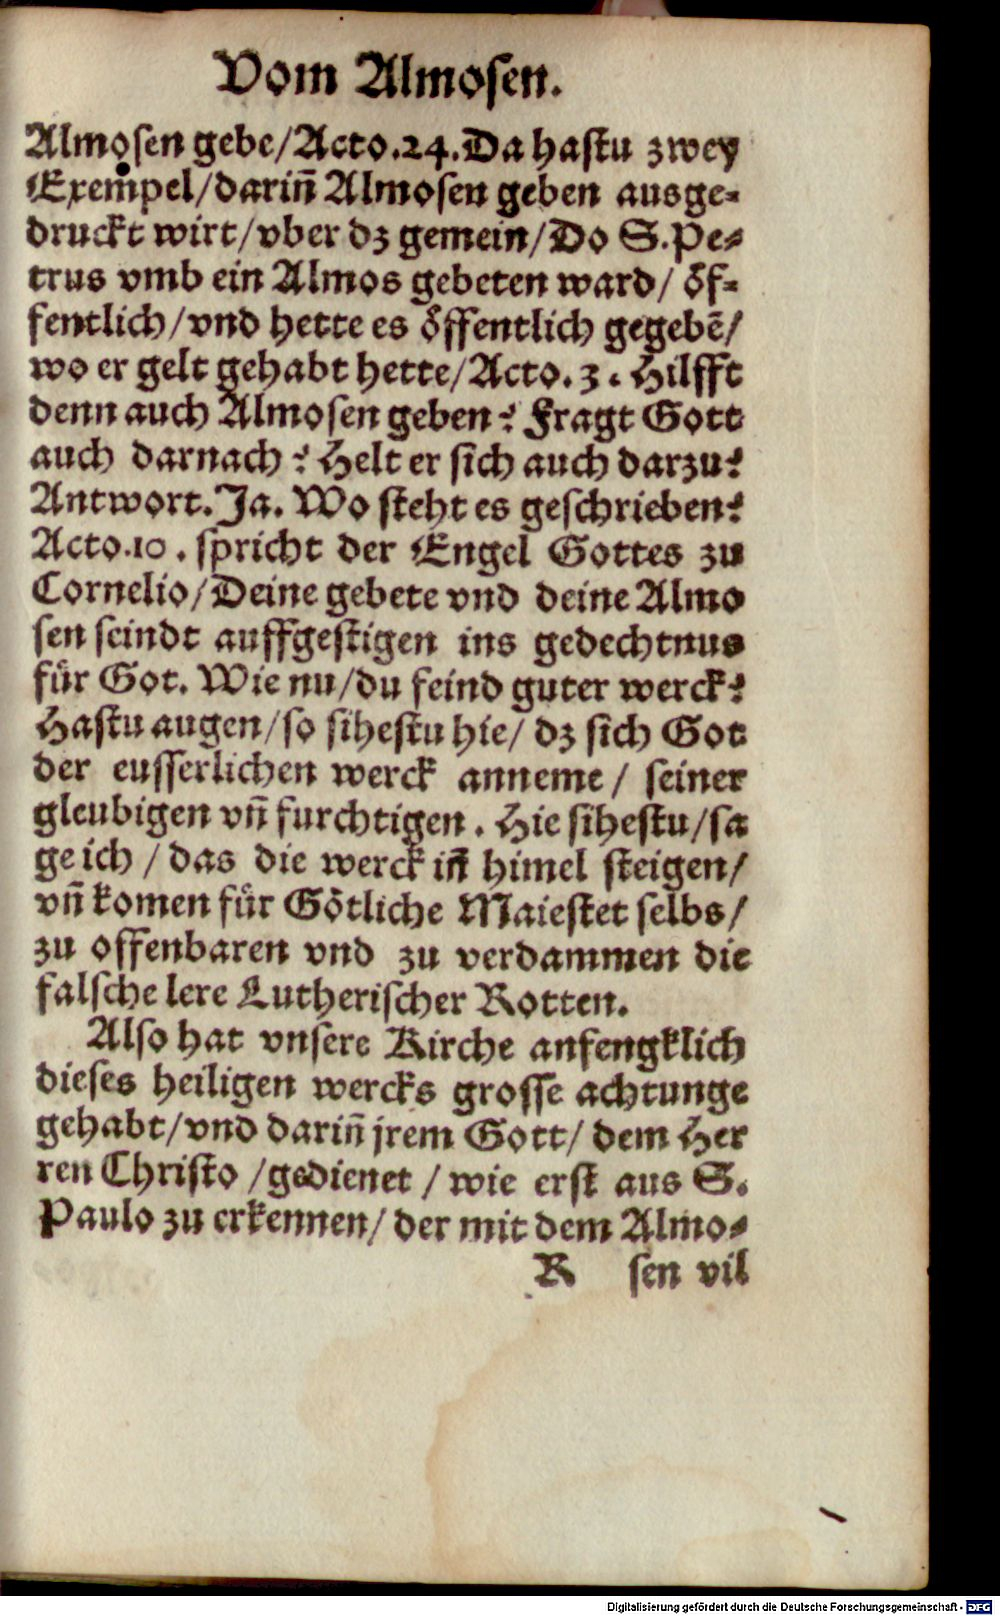 Vom Almosen.
Almosen gebe/Acto.24.Da hastu zwey
Exempel/darin̄ Almosen geben ausge⸗
druckt wirt/vber dz gemein/Do S.Pe⸗
trus vmb ein Almos gebeten ward/ öf⸗
fentlich/vnd hette es öffentlich gegebē/
wo er gelt gehabt hette/Acto.3. Hilfft
denn auch Almosen geben? Fragt Gott
auch darnach? Helt er sich auch darzu?
Antwort. Ja. Wo steht es geschrieben?
Acto.10. spricht der Engel Gottes zu
Cornelio/Deine gebete vnd deine Almo
sen seindt auffgestigen ins gedechtnus
für Got. Wie nu/du feind guter werck?
Hastu augen/so sihestu hie/ dz sich Got
der eusserlichen werck anneme/ seiner
gleubigen vn̄ furchtigen. Hie sihestu/sa
ge ich/das die werck in̄ himel steigen/
vn̄ komen für Götliche Maiestet selbs/
zu offenbaren vnd zu verdammen die
falsche lere Lutherischer Rotten.
Also hat vnsere Kirche anfengklich
dieses heiligen wercks grosse achtunge
gehabt/vnd darin̄ jrem Gott/ dem Her
ren Christo/gedienet/wie erst aus S.
Paulo zu erkennen/der mit dem Almo⸗
R sen vil
Digitalisierung gefördert durch die Deutsche Forschungsgemeinschaft - DFG